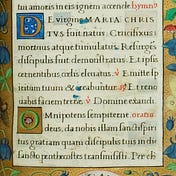 tui amoris in eis ignem accende. hymn9
DE virgine MARIA CHRIS
TVS fuit natus Crucifixus
mortuus atque tumulatus. Resurgēs
discipulis fuit demonstratus. Et ipsis
cernentibus celis elevatus. V Emitte sp
intum tuum & creabuntur. R Et reno
uabis faciem terre. V Domine exaudi
OMnipotens sempiterne. oratio
deus, da nobis illam sancti spiri
tus gratiam quam discipulis tuis in die
sancto penthecostes transmisisti. Per eū